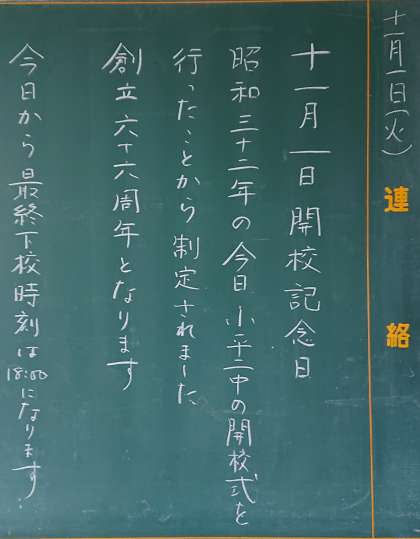 十一月一日(火)
連絡
十一月一日開校記念日
昭和三十二年の今日小平二中の開校式を
行ったことから制定されました
創立六十六周年となります
今日から最終下校時刻は18:00になります